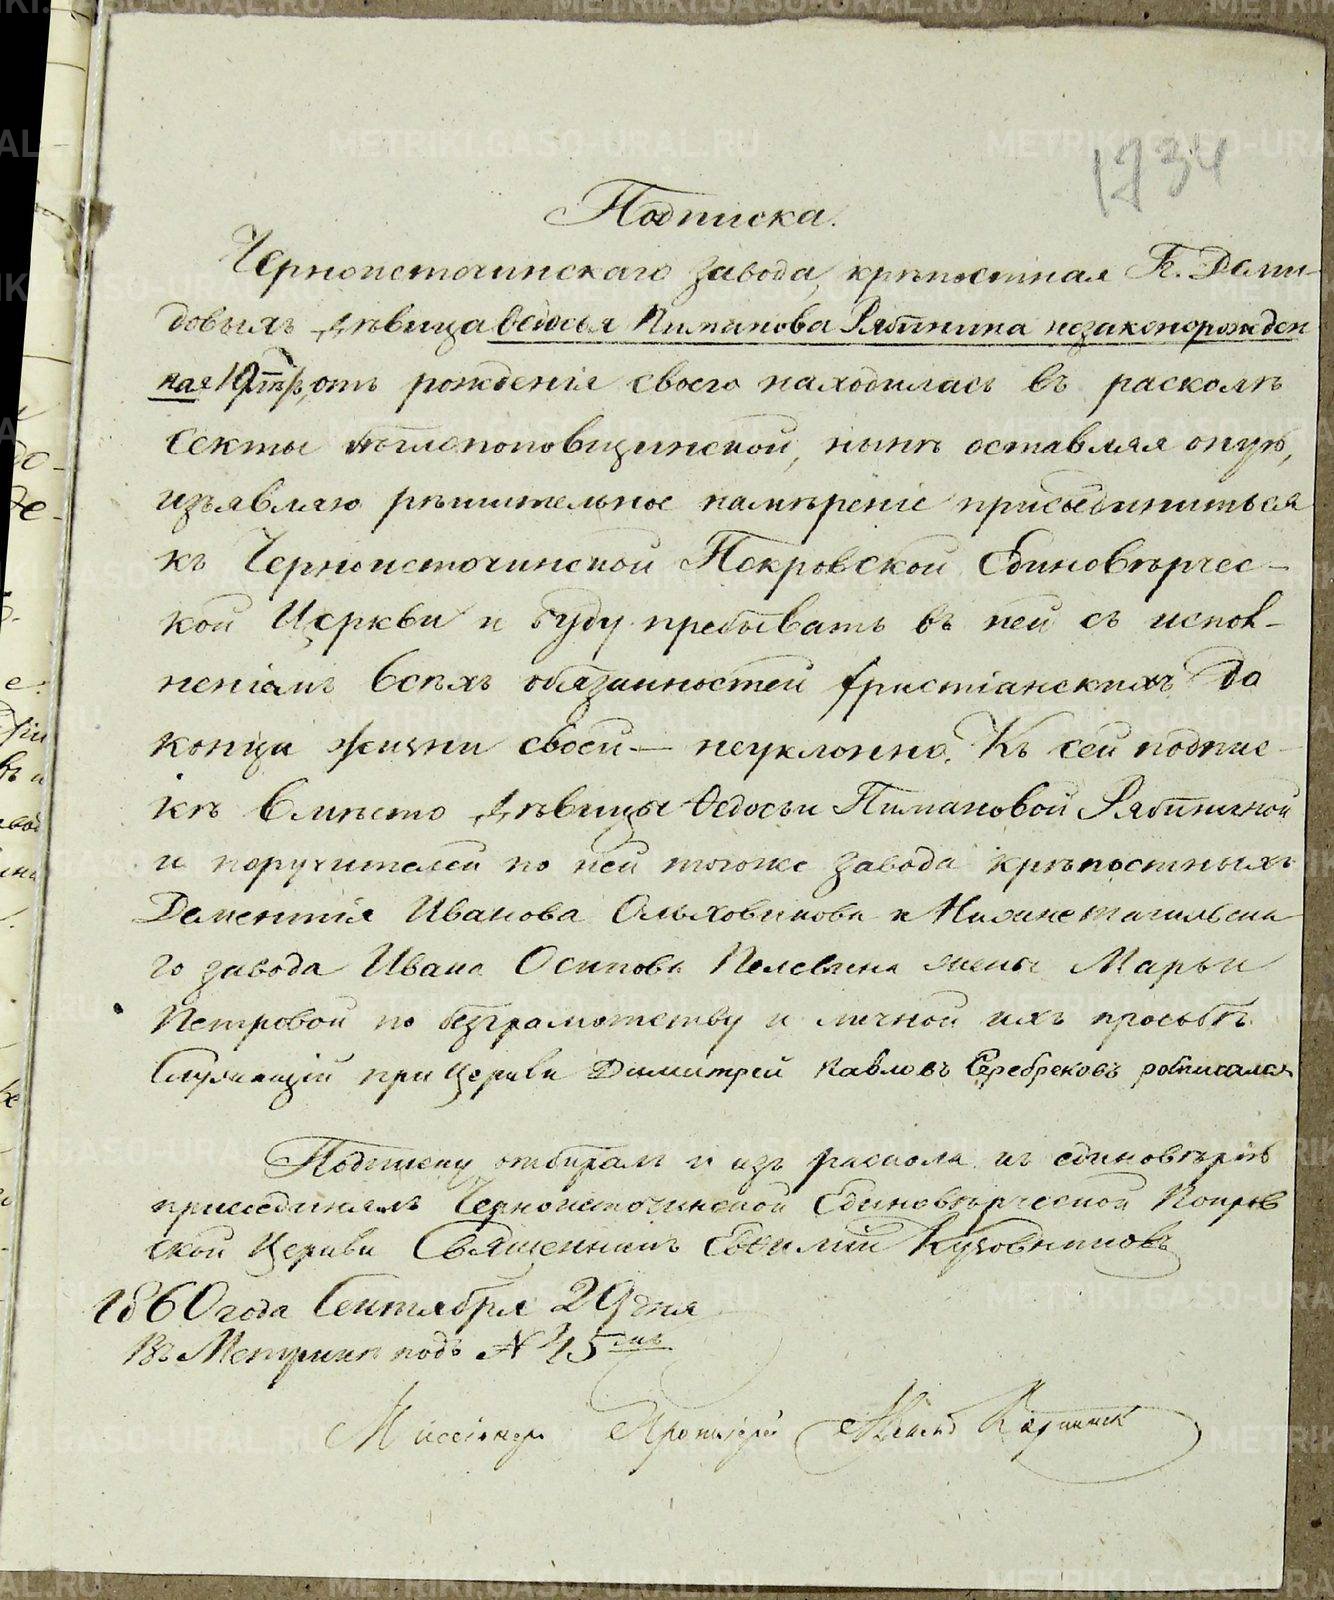 1734
Подписка.
Черноисточинскаго завода, крѣпостная Г. Деми-
довыхъ дѣвица Ѳедосья Пиманова Рябинина незаконорожден
ная 19 от рожденія своего находилась въ расколѣ
секты бѣглопоповщинской, нынѣ оставляя оную,
изъявляю рѣшительное намѣреніе присоединиться
къ Черноисточинской Покровской Единовѣрчес-
кой Церкви и буду пребывать въ ней съ испол-
неніемъ всѣхъ обязанностей христіанскихъ до
конца жизни своей — неуклонно. Къ сей подпис-
кѣ вмѣсто дѣвицы Ѳедосьи Пимановой Рябининой
и поручителей по ней тогоже завода крѣпостныхъ
Дементія Иванова Ольховикова и Нижнетагильска-
го завода Ивана Осипова Пелевина жены Марьи
Петровой по безграмотству и личной ихъ просьбѣ
Служащій при Церкви Димитрей Павловъ Серебреков росписался
Подписку отбиралъ и изъ раскола къ единовѣрію
присоединялъ Черноисточинской Единовѣрческой Покров
ской Церкви Священникъ Евѳимій Кузовниковъ
1860 года Сентября 29 дня
Въ Метрикѣ подъ № 45
Миссіонеръ Протоіерей